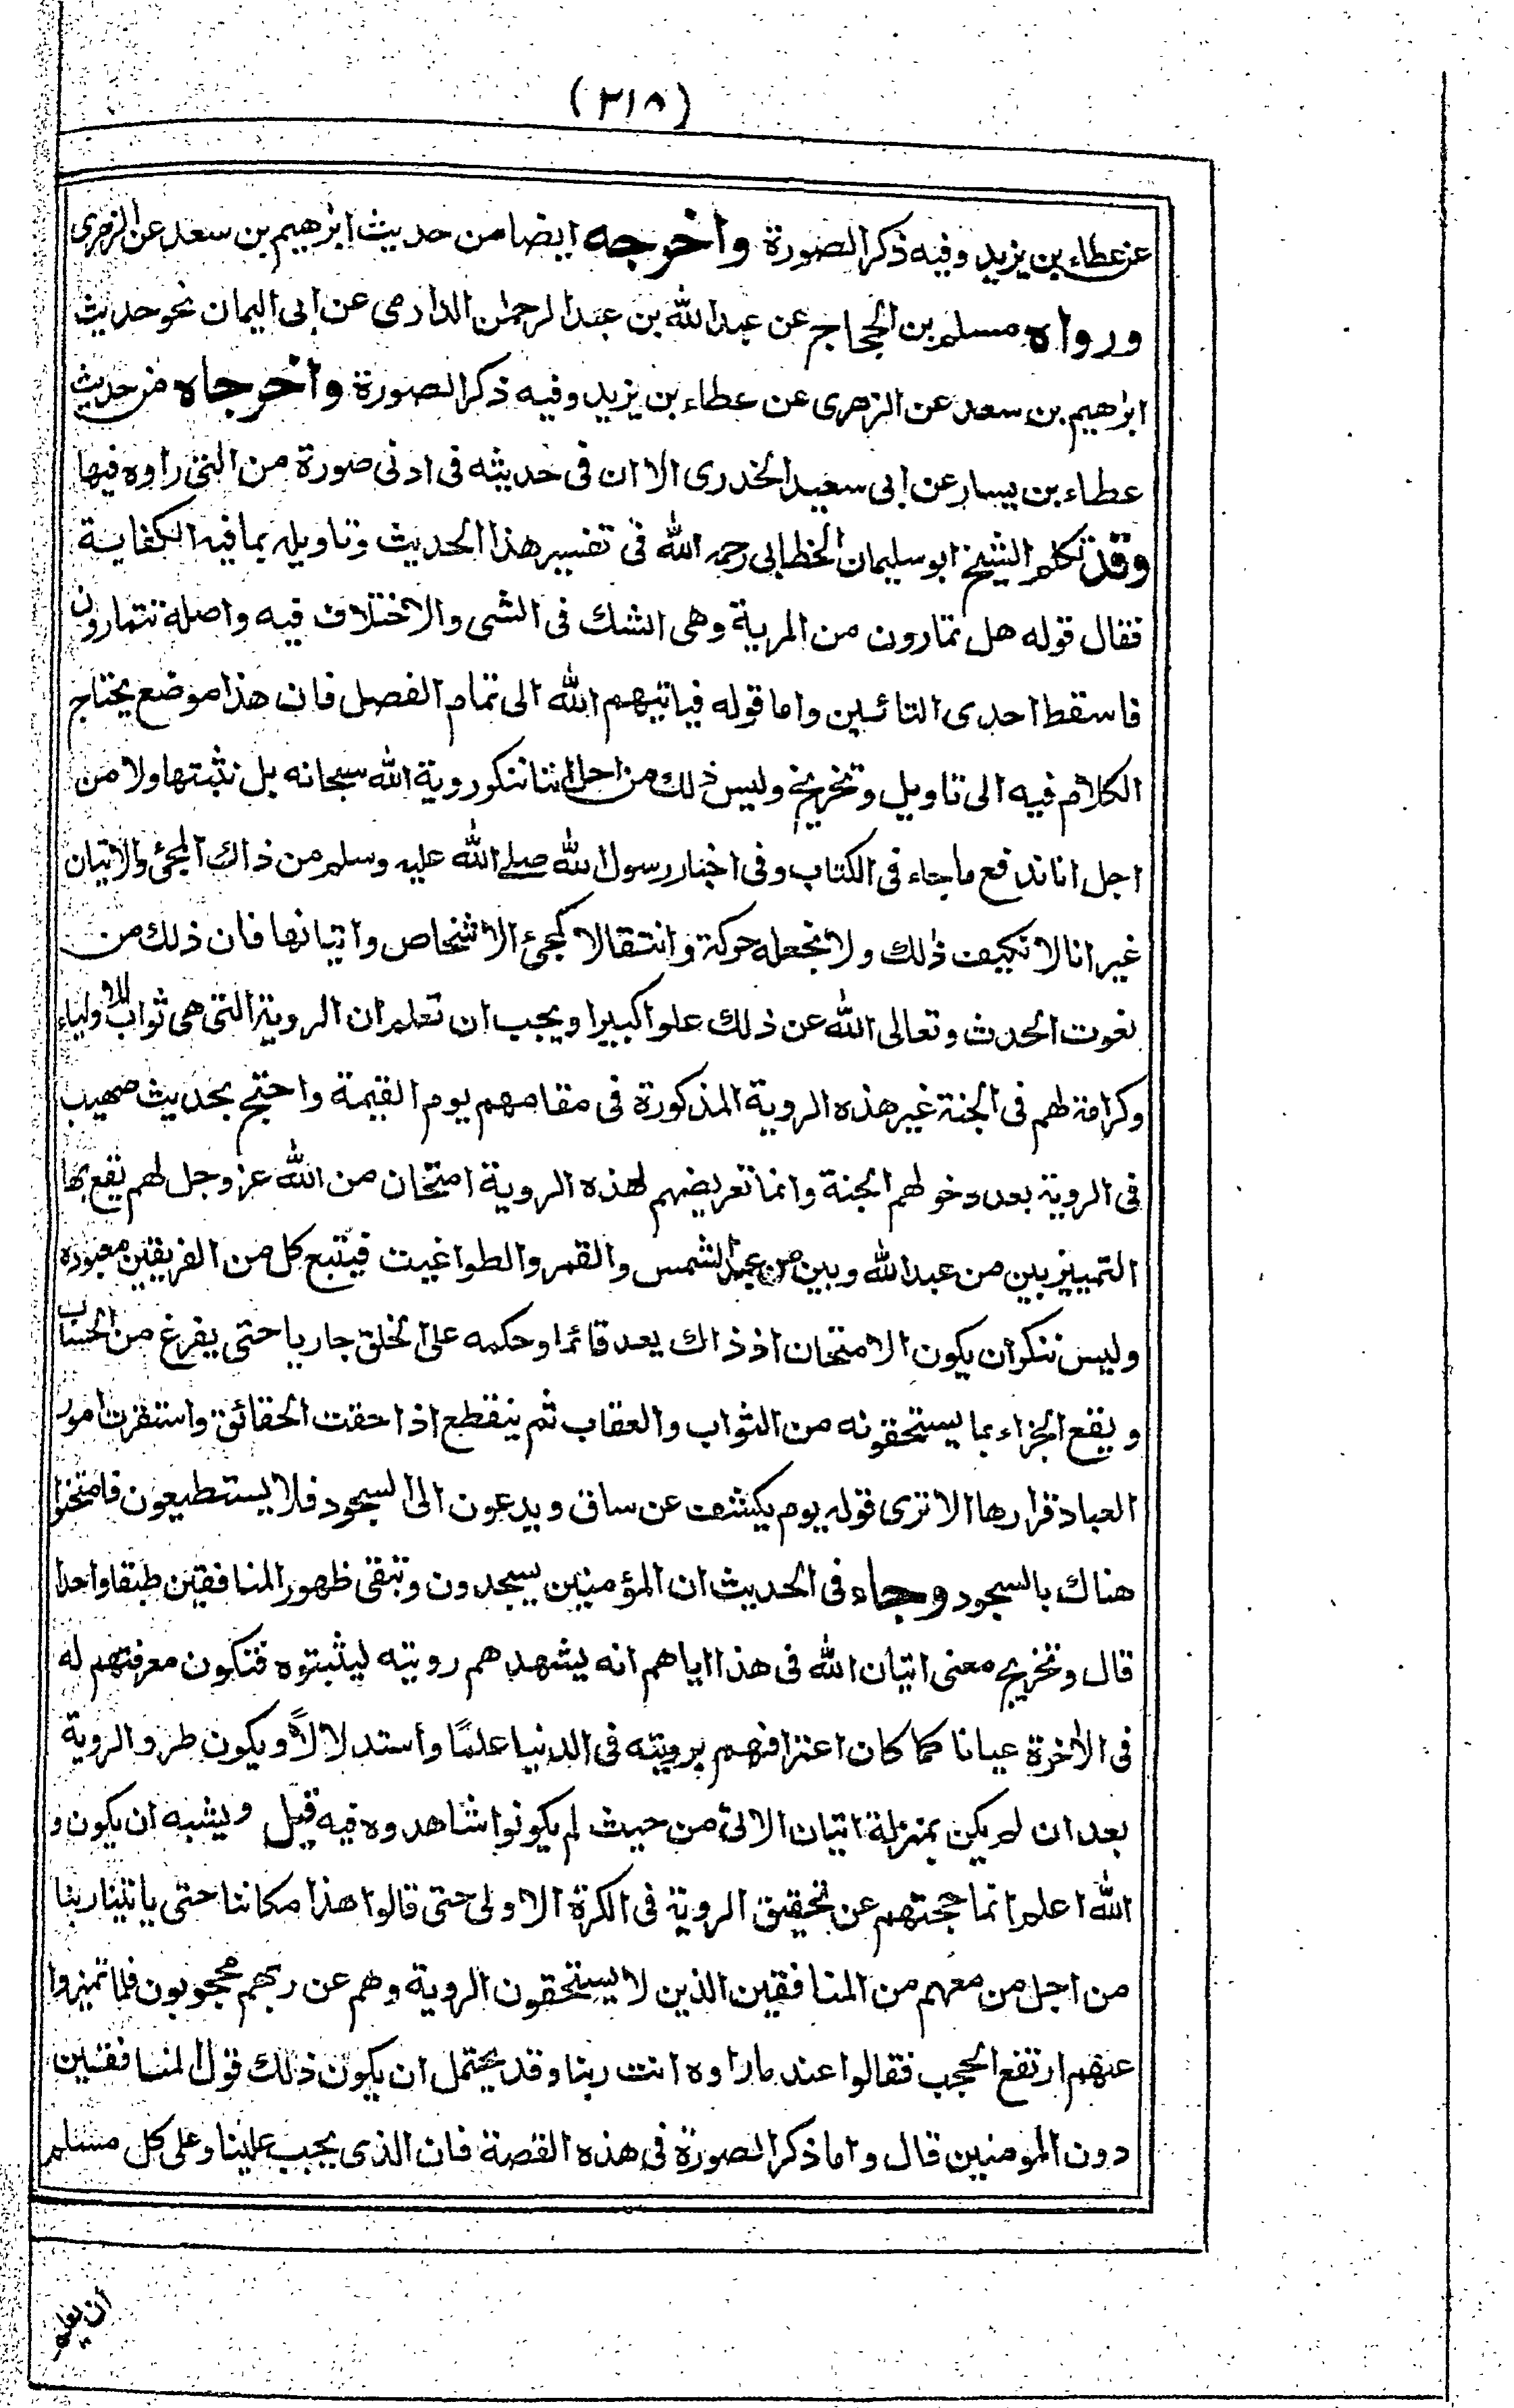 (٢١٨)
عن عطاء بن يزيد وفيه ذكر الصورة واخرجه ايضا من حديث ابرٰهيم بن سعد عن الزهرى
ورواه مسلم بن الحجاج عن عبد الله بن عبد الرحمٰن الدارمى عن ابى اليمان نحو حديث
ابرٰهيم بن سعد عن الزهرى عن عطاء بن يزيد وفيه ذكر الصورة واخرجاه من حديث
عطاء بن يسار عن ابى سعيد الخدرى الا ان فى حديثه فى ادنى صورة من التى راوه فيها
وقد تكلم الشيخ ابو سليمان الخطابى رحمه الله فى تفسير هذا الحديث وتاويله بما فيه الكفاية
فقال قوله هل تمارون من المرية وهى الشك فى الشى والاختلاف فيه واصله تتمارون
فاسقط احدى التائين واما قوله فياتيهم الله الى تمام الفصل فان هذا موضع يحتاج
الكلام فيه الى تاويل وتخريج وليس ذلك من اجل اننا ننكر روية الله سبحانه بل نثبتها ولا من
اجل انا ندفع ما جاء فى الكتاب وفى اخبار رسول الله صلى الله عليه وسلم من ذاك المجئ والاتيان
غير انا لا نكيف ذلك ولا نجعله حركة وانتقالا كمجئ الاشخاص واتيانها فان ذلك من
نعوت الحدث وتعالى الله عن ذلك علوا كبيرا ويجب ان تعلم ان الروية التى هى ثواب للاولياء
وكرامة لهم فى الجنة غير هذه الروية المذكورة فى مقامهم يوم القيمة واحتج بحديث صهيب
فى الروية بعد دخولهم الجنة وانما تعريضهم لهذه الروية امتحان من الله عز وجل لهم يقع بها
التمييز بين من عبد الله وبين من عبد الشمس والقمر والطواغيت فيتبع كل من الفريقين معبوده
وليس ننكر ان يكون الامتحان اذ ذاك يعد قائما وحكمه على الخلق جاريا حتى يفرغ من الحساب
ويقع الجزاء بما يستحقونه من الثواب والعقاب ثم ينقطع اذا حقت الحقائق واستقرت امور
العباد قرارها الا ترى قوله يوم يكشف عن ساق ويدعون الى السجود فلا يستطيعون فامتحنوا
هناك بالسجود وجاء فى الحديث ان المؤمنين يسجدون وتبقى ظهور المنافقين طبقا واحدا
قال وتخريج معنى اتيان الله فى هذا اياهم انه يشهدهم رويته ليثبتوه فتكون معرفتهم له
فى الاٰخرة عيانا كما كان اعترافهم برويته فى الدنيا علمًا واستدلالاً ويكون طرو الروية
بعد ان لم يكن بمنزلة اتيان الاتى من حيث لم يكونوا شاهدوه فيه قبل ويشبه ان يكون و
الله اعلم انما حجبتهم عن تحقيق الروية فى الكرة الاولى حتى قالوا هذا مكاننا حتى ياتينا ربنا
من اجل من معهم من المنافقين الذين لا يستحقون الروية وهم عن ربهم محجوبون فلما تميزوا
عنهم ارتفع الحجب فقالوا عند ما راوه انت ربنا وقد يحتمل ان يكون ذلك قول المنافقين
دون المومنين قال واما ذكر الصورة فى هذه القصة فان الذى يجب علينا وعلى كل مسلم
ان يعلم